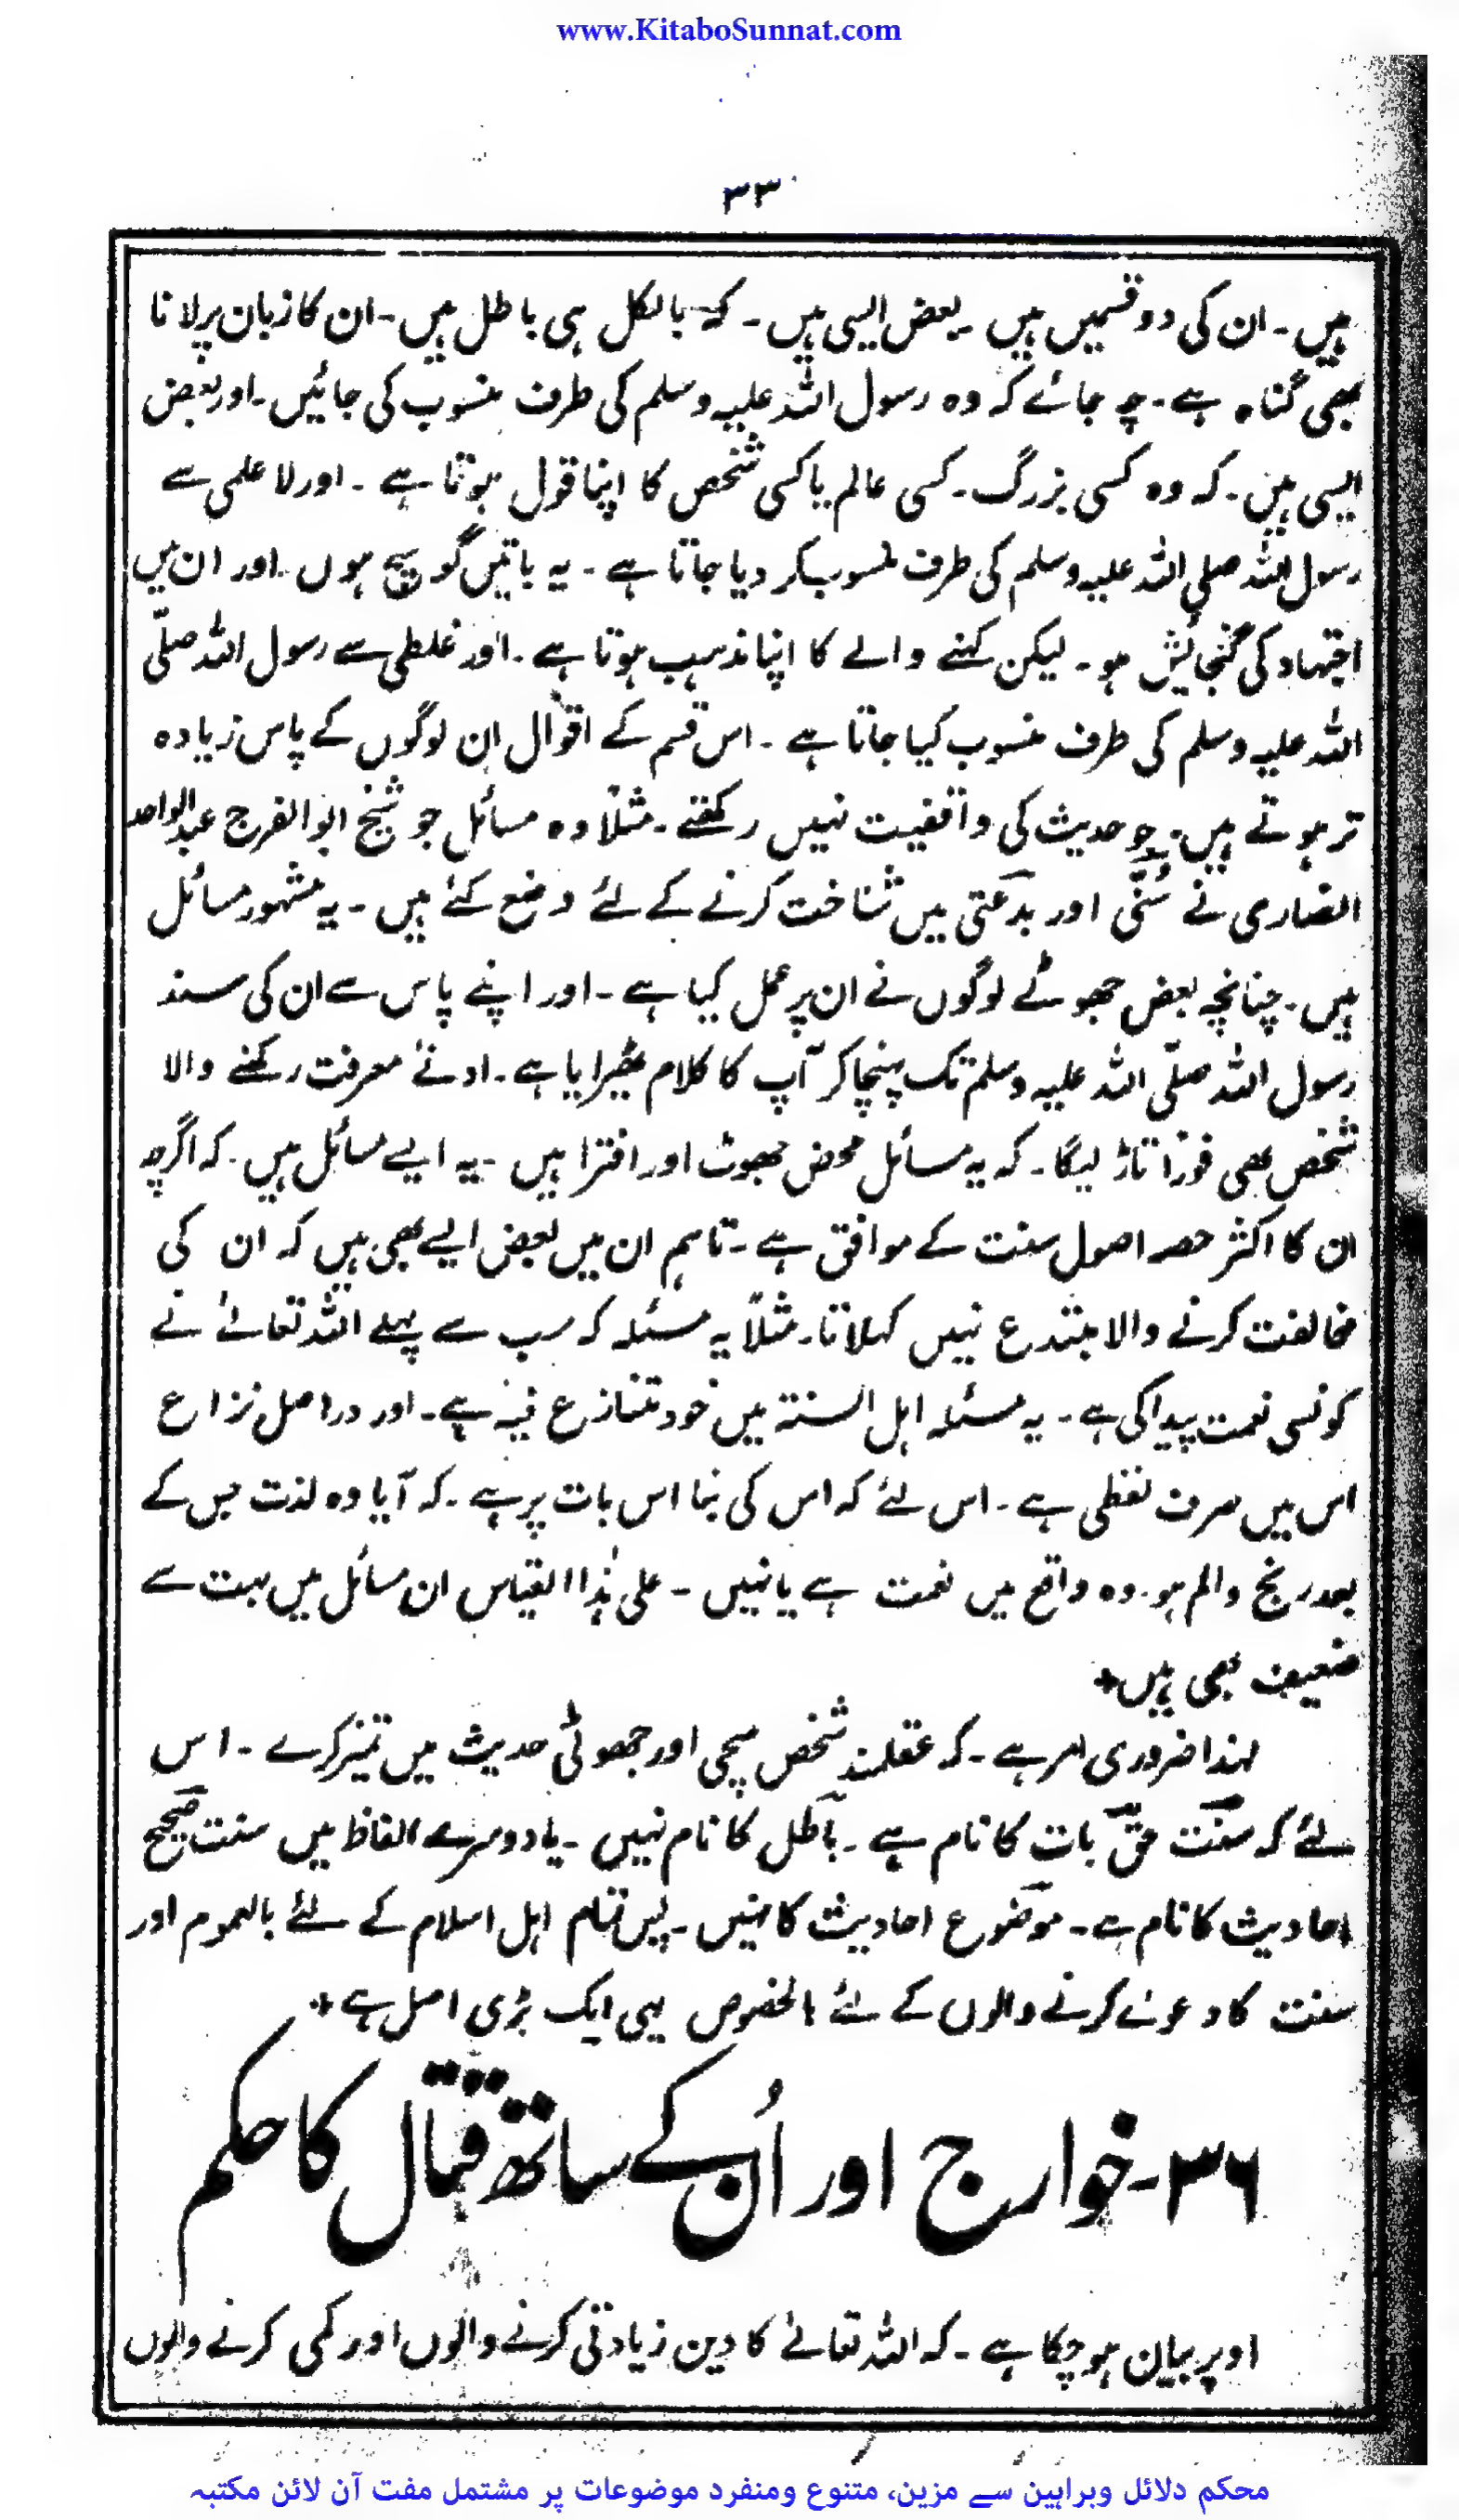 www.KitaboSunnat.com
۳۳
ہیں۔ ان کی دو قسمیں ہیں۔ بعض ایسی ہیں۔ کہ بالکل ہی باطل ہیں۔ ان کا زبان پر لانا
بھی گناہ ہے۔ چہ جائے کہ وہ رسول اللہ علیہ وسلم کی طرف منسوب کی جائیں۔ اور بعض
ایسی ہیں۔ کہ وہ کسی بزرگ۔ کسی عالم یا کسی شخص کا اپنا قول ہوتا ہے۔ اور لا علمی سے
رسول اللہ صلی اللہ علیہ وسلم کی طرف منسوب کر دیا جاتا ہے۔ یہ باتیں گو سچ ہوں۔ اور ان میں
اجتہاد کی گنجایش ہو۔ لیکن کہنے والے کا اپنا مذہب ہوتا ہے۔ اور غلطی سے رسول اللہ صلّی
اللہ علیہ وسلم کی طرف منسوب کیا جاتا ہے۔ اس قسم کے اقوال ان لوگوں کے پاس زیادہ
تر ہوتے ہیں۔ جو حدیث کی واقفیت نہیں رکھتے۔ مثلاً وہ مسائل جو شیخ ابوالفرج عبدالواحد
انصاری نے سُنّی اور بدعتی میں شناخت کرنے کے لئے وضع کئے ہیں۔ یہ مشہور مسائل
ہیں۔ چنانچہ بعض جھوٹے لوگوں نے ان پر عمل کیا ہے۔ اور اپنے پاس سے ان کی سند
رسول اللہ صلّی اللہ علیہ وسلم تک پہنچا کر آپ کا کلام ٹھیرایا ہے۔ ادنےٰ معرفت رکھنے والا
شخص بھی فوراً تاڑ لیگا۔ کہ یہ مسائل محض جھوٹ اور افترا ہیں۔ یہ ایسے مسائل ہیں۔ کہ اگرچہ
ان کا اکثر حصہ اصول سنت کے موافق ہے۔ تاہم ان میں بعض ایسے بھی ہیں کہ ان کی
مخالفت کرنے والا مبتدع نہیں کہلاتا۔ مثلاً یہ مسئلہ کہ سب سے پہلے اللہ تعالےٰ نے
کونسی نعمت پیدا کی ہے۔ یہ مسئلہ اہل السنۃ میں خود متنازع فیہ ہے۔ اور دراصل نزاع
اس میں صرف لفظی ہے۔ اس لئے کہ اس کی بنا اس بات پر ہے۔ کہ آیا وہ لذت جس کے
بعد رنج والم ہو۔ وہ واقع میں نعمت ہے یا نہیں۔ علی ہٰذا القیاس ان مسائل میں بہت سے
ضعیف بھی ہیں+
لہذا ضروری امر ہے۔ کہ عقلمند شخص سچی اور جھوٹی حدیث میں تمیز کرے۔ اس
لئے کہ سنت حق بات کا نام ہے۔ باطل کا نام نہیں۔ یا دوسرے الفاظ میں سنت صحیح
احادیث کا نام ہے۔ موضوع احادیث کا نہیں۔ پس تمام اہل اسلام کے لئے بالعموم اور
سنت کا دعوےٰ کرنے والوں کے لئے بالخصوص یہی ایک بڑی اصل ہے+
۳۶۔ خوارج اور اُن کے ساتھ قتال کا حکم
اوپر بیان ہو چکا ہے۔ کہ اللہ تعالےٰ کا دین زیادتی کرنے والوں اور کمی کرنے والوں
محکم دلائل وبراہین سے مزین، متنوع ومنفرد موضوعات پر مشتمل مفت آن لائن مکتبہ